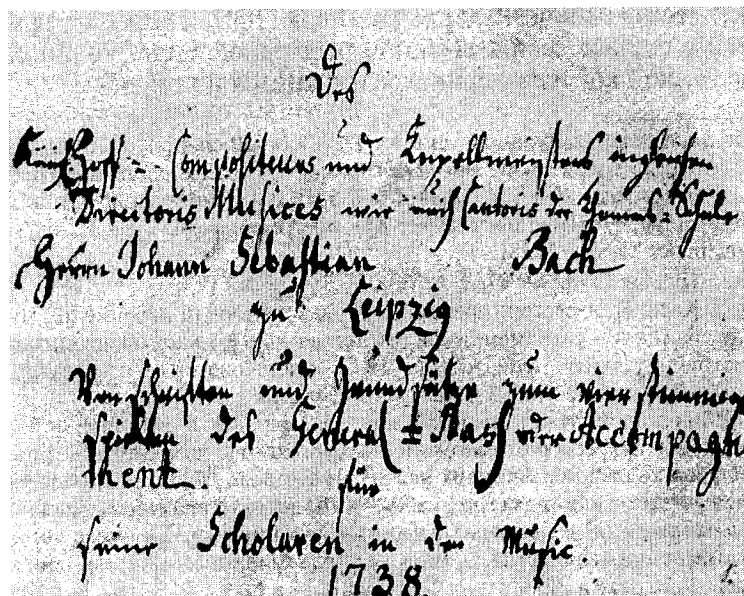 Des
Hoff = Compositeurs und Capellmeisters ingleichen
Directoris Musices wie auch Cantoris der Thomas = Schule
Herrn Johann Sebastian Bach
zu Leipzig
Vorschriften und Grundsätze zum vierstimmigen
spielen des General = Bass oder Accompagne
ment. für
seine Scholaren in der Music.
1738.